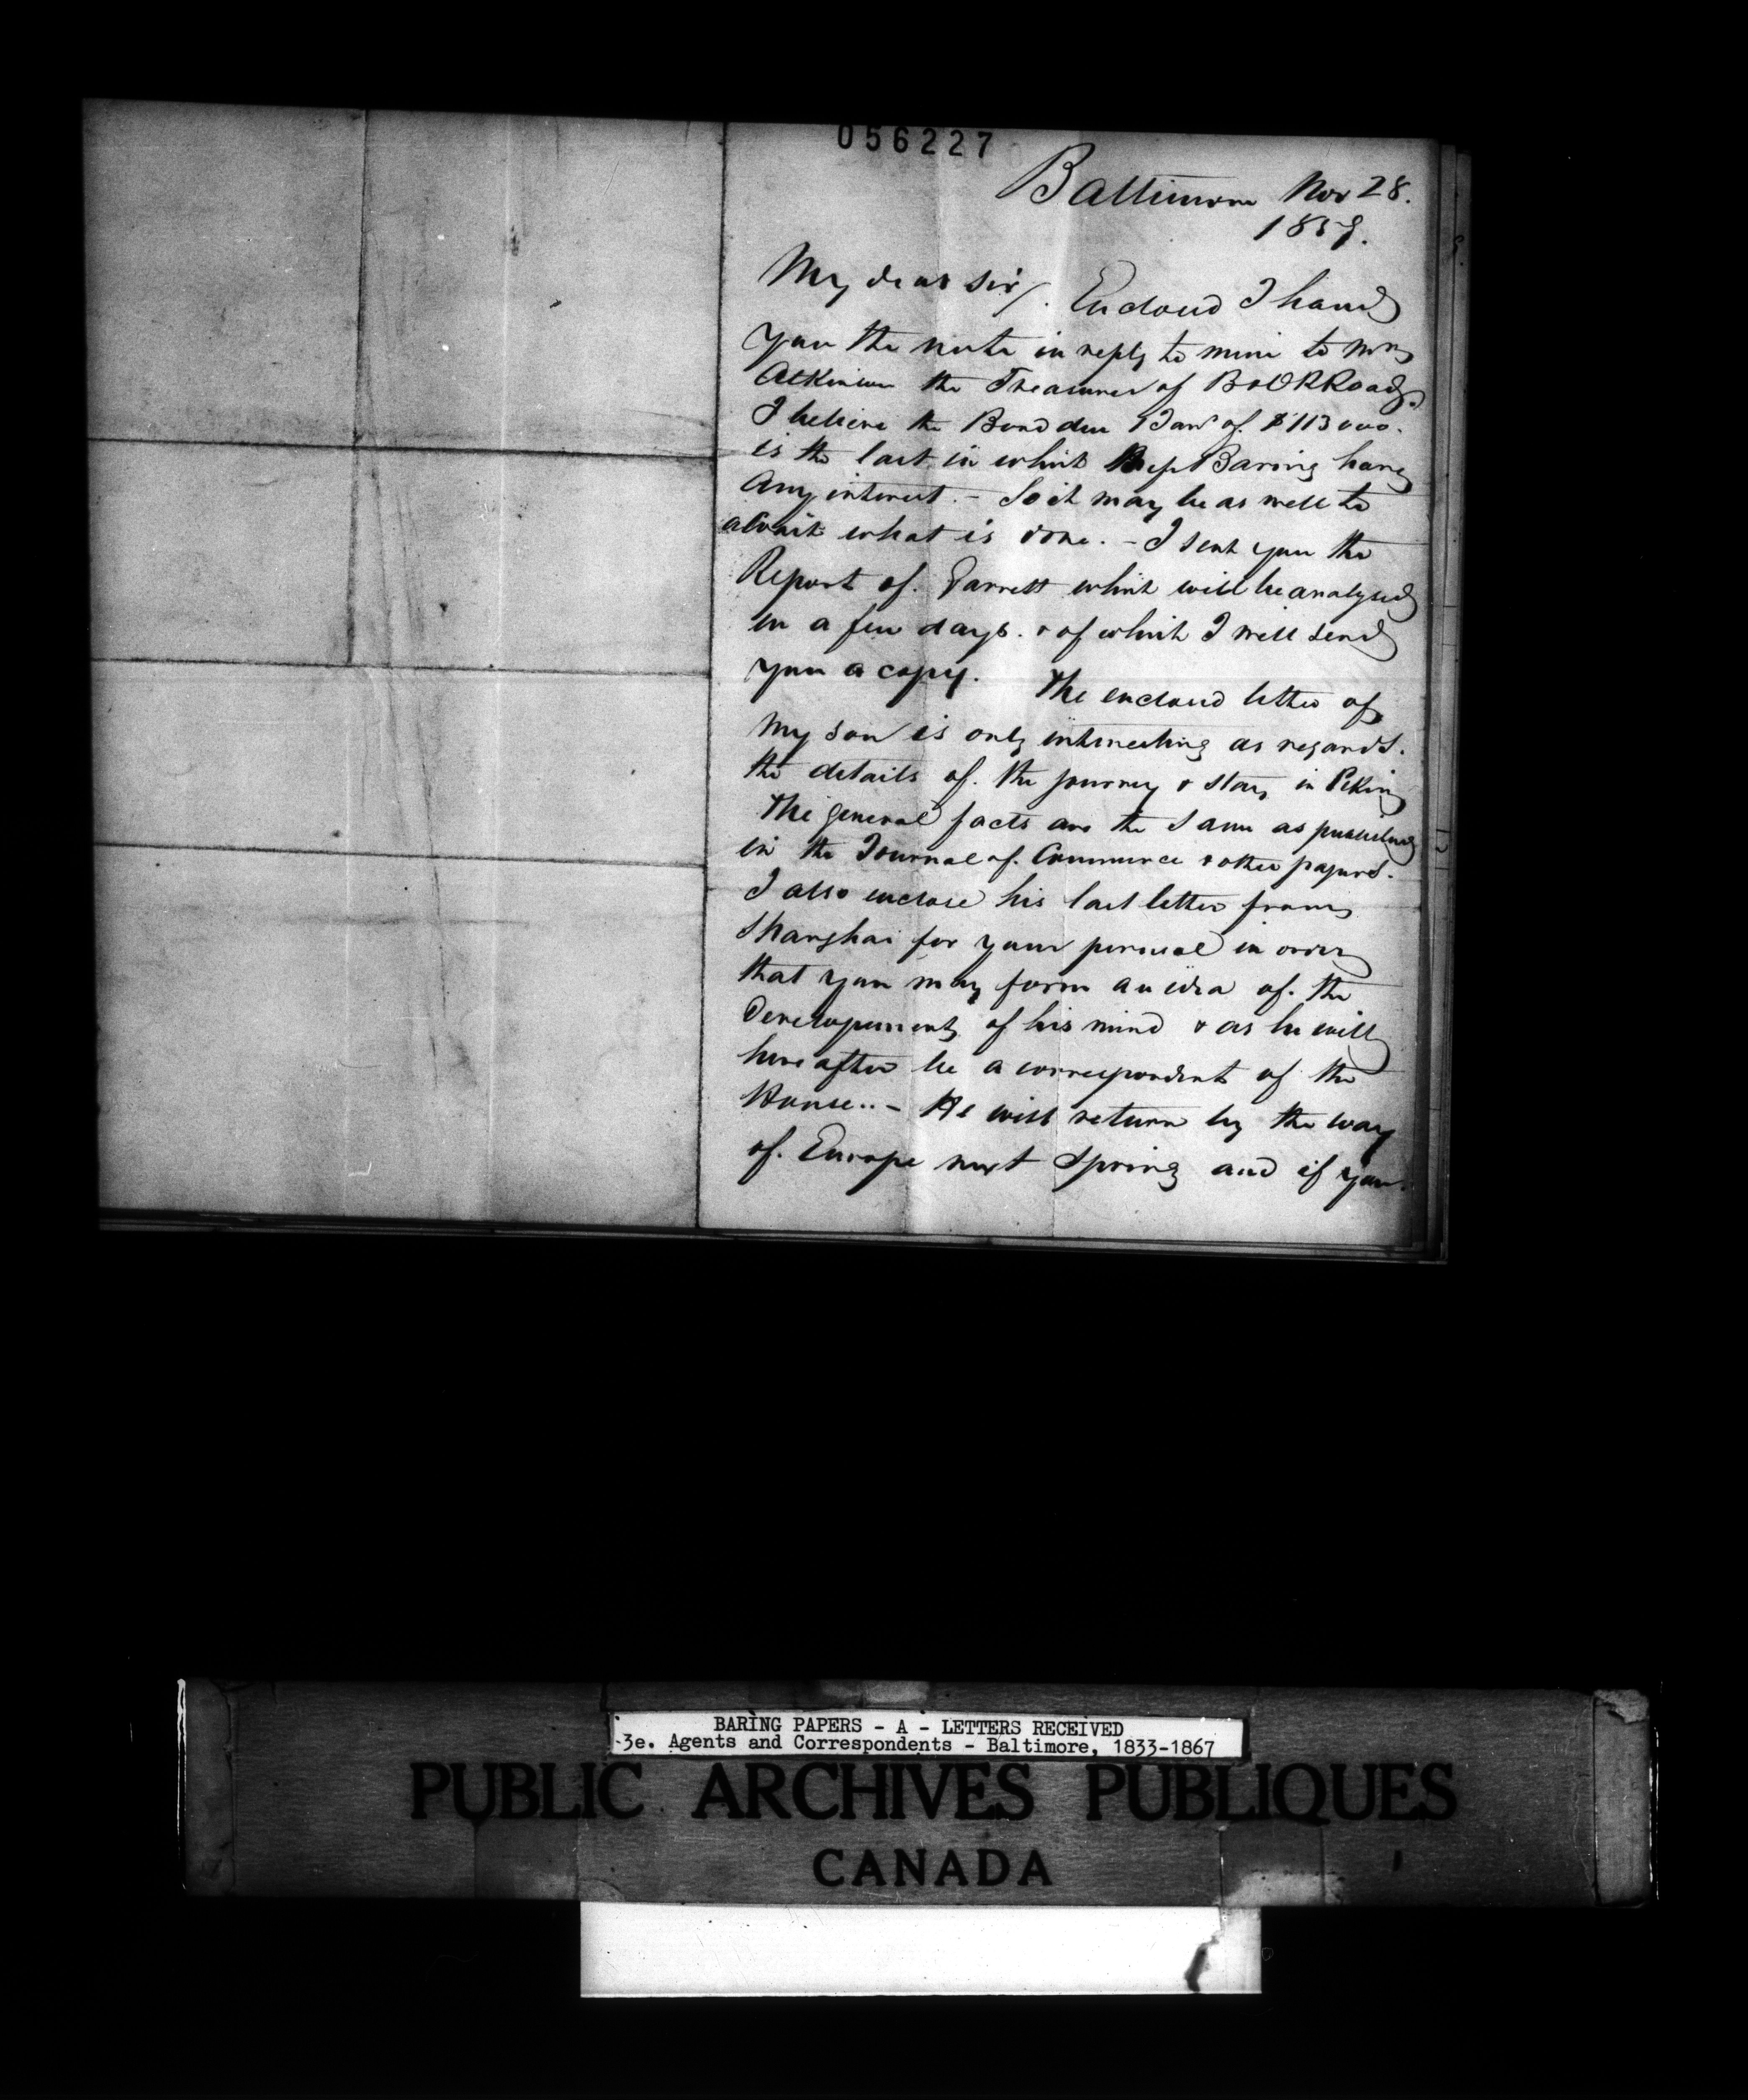 056227
Baltimore Nov 28.
1859.
My dear Sir/. Enclosed I hand
you the note in reply to mine to Mr
Atkinson the Treasurer of B&O RRoad.
I believe the Bond due Jany of $113000.
is the last in which Messrs Baring have
any interest. - So it may be as well to
await what is done. - I sent you the
Report of. Garrett which will be analysed
in a few days. & of which I will send
you a copy. The enclosed letter of
my son is only interesting as regards.
the details of. the journey & stay in Pekin
The general facts are the same as published
in the Journal of. Commerce & other papers.
I also enclose his last letter from
Shanghai for your perusal in order
that you may form an idea of. the
Developement of his mind & as he will
hereafter be a correspondent of the
House.. - He will return by the way
of. Europe next Spring and if you
BARING PAPERS - A - LETTERS RECEIVED
3e. Agents and Correspondents - Baltimore, 1833-1867
PUBLIC ARCHIVES PUBLIQUES
CANADA